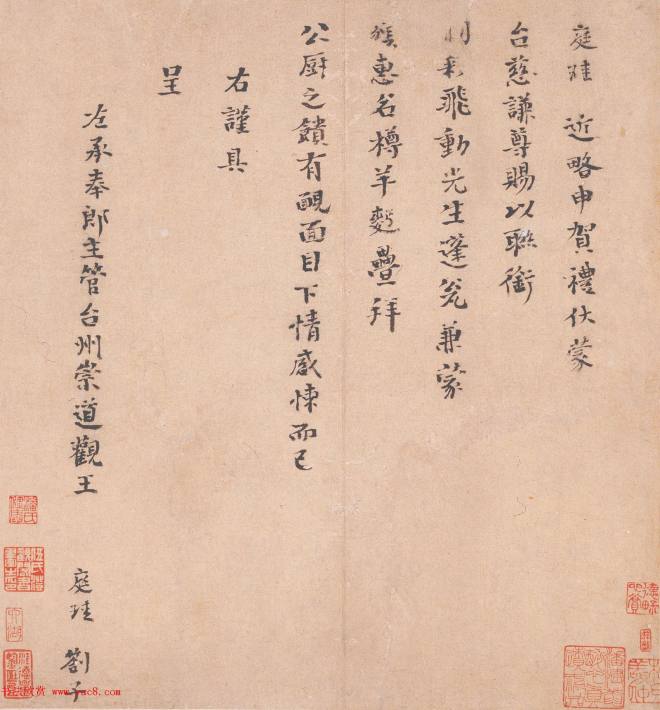 庭珪 近略申賀禮伏蒙
台慈謙尊賜以聯銜
彩飛動光生蓬瓮兼蒙
惠名樽羊麪疊拜
公厨之饋有靦面目下情感悚而已
右謹具
呈
左承奉郎主管台州崇道觀王 庭珪 劄子
书法欣赏 www.yac8.com